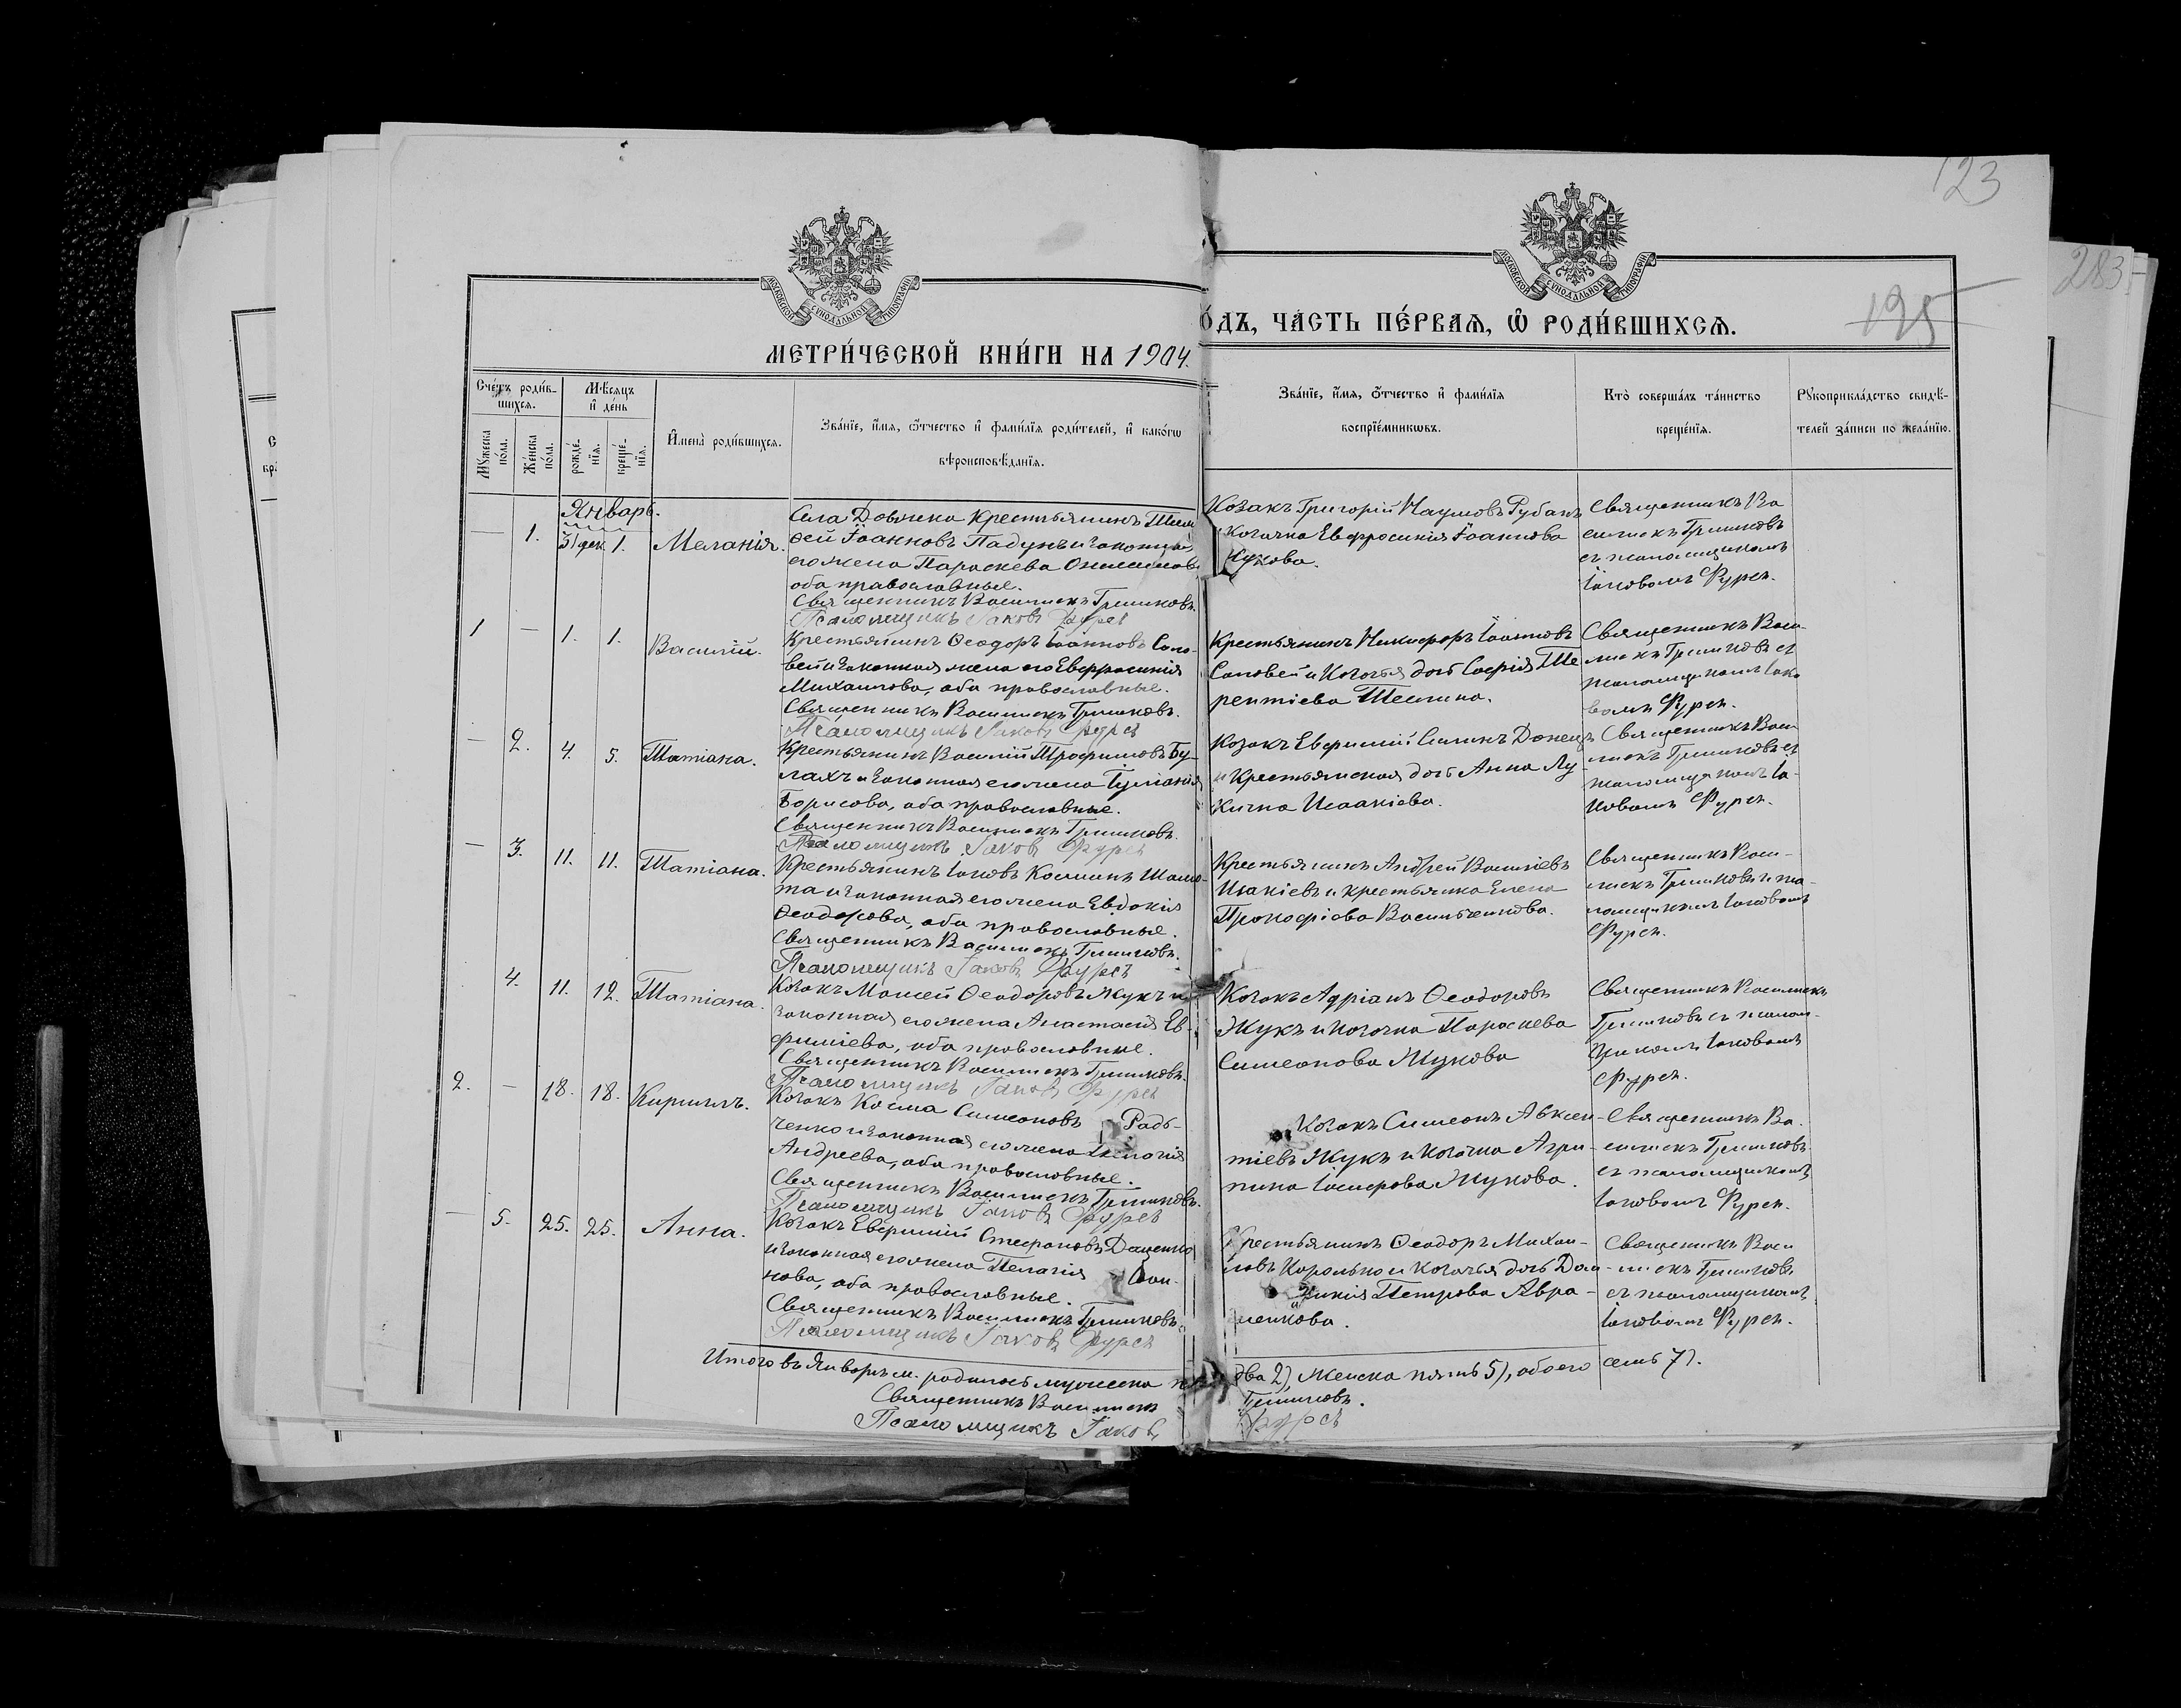 123
283
195
МОСКОВСКОЙ СѴНОДАЛЬНОЙ ТИПОГРАФІИ
МОСКОВСКОЙ СѴНОДАЛЬНОЙ ТИПОГРАФІИ
МЕТРИ́ЧЕСКОЙ КНИ́ГИ НА 1904.
О́ДЪ, ЧА́СТЬ ПЕ́РВАЯ, Ѡ҆ РОДИ́ВШИХСЯ.
Сче́тъ роди́в-
шихся.
Мꙋ́жеска по́ла.
Же́нска по́ла.
Мѣ́сяцъ
и҆ де́нь
рожде́-
нїя.
креще́-
нїя.
И҆мена̀ роди́вшихся.
Зва́нїе, и҆́мя, ѻ҆́тчество и҆ фами́лїя роди́телей, и҆ како́гѡ
вѣроисповѣ́данїя.
Зва́нїе, и҆́мя, ѻ҆́тчество и҆ фами́лїя
воспрїе́мникѡвъ.
Кто̀ соверша́лъ та́инство
креще́нїя.
Рꙋкоприкла́дство свидѣ́-
телей за́писи по жела́нїю.
Январь.
— 1. 31 дек. 1. Меланія.
Села Довжика крестьянинъ Тимо
фей Іоанновъ Падунъ и законная
его жена Параскева
оба православные.
Священникъ Василискъ Гришковъ.
Псаломщикъ Іаковъ Фурсъ
Козакъ Григорій Наумовъ Рубанъ
и козачка Евфросинія Іоаннова
Жукова.
Священникъ Ва
силискъ Гришковъ
съ псаломщикомъ
Іаковомъ Фурсъ.
1 — 1. 1. Василій.
Крестьянинъ Ѳеодоръ Іоанновъ Соло-
вей и законная жена его Евфросинія
Михаилова, оба православные.
Священникъ Василискъ Гришковъ.
Псаломщикъ Іаковъ Фурсъ
Крестьянинъ Никифоръ Іоанновъ
Соловей и козачья дочь Софія Те
рентіева
Священникъ Васи-
лискъ Гришковъ съ
псаломщикомъ Іако
вомъ Фурсъ.
— 2. 4. 5. Татіана.
Крестьянинъ Василій Трофимовъ Бу-
лахъ и законная его жена Іуліанія
Борисова, оба православные.
Священникъ Василискъ Гришковъ.
Псаломщикъ Іаковъ Фурсъ
Козакъ Евфимій Донецъ
и крестьянская дочь Анна Лу-
кична Исаакіева.
Священникъ Васи
лискъ Гришковъ съ
псаломщикомъ Іа-
ковомъ Фурсъ.
— 3. 11. 11. Татіана.
Крестьянинъ Іаковъ Косминъ
и законная его жена Евдокія
Ѳеодорова, оба православные.
Священникъ Василискъ Гришковъ.
Псаломщикъ Іаковъ Фурсъ
Крестьянинъ Андрей Василіевъ
Исакіевъ и крестьянка Елена
Прокофіева Васильченкова.
Священникъ Васи-
лискъ Гришковъ и пса-
ломщикомъ Іаковомъ
Фурсъ.
4. 11. 12. Татіана.
Козакъ Моисей Ѳеодоровъ Жукъ и
законная его жена Анастасія Ев-
фиміева, оба православные.
Священникъ Василискъ Гришковъ.
Псаломщикъ Іаковъ Фурсъ
Козакъ Адріанъ Ѳеодоровъ
Жукъ и козачка Параскева
Симеонова Жукова
Священникъ Василискъ
Гришковъ съ псалом-
щикомъ Іаковомъ
Фурсъ.
2. — 18. 18. Кириллъ.
Козакъ Косма Симеоновъ Радь-
ченко и законная его жена
Андреева, оба православные.
Священникъ Василискъ Гришковъ.
Псаломщикъ Іаковъ Фурсъ
Козакъ Симеонъ Авксен-
тіевъ Жукъ и козачка Агри-
пина Іосифова Жукова.
Священникъ Ва-
силискъ Гришковъ
съ псаломщикомъ
Іаковомъ Фурсъ.
— 5. 25. 25. Анна.
Козакъ Евфимій Стефановъ Даценко
и законная его жена Пелагія Іоан-
нова, оба православные.
Священникъ Василискъ Гришковъ.
Псаломщикъ Іаковъ Фурсъ
Крестьянинъ Ѳеодоръ Михаи-
ловъ Королько и козачья дочь Дом-
никія Петрова Авра-
менкова.
Священникъ Васи
лискъ Гришковъ
съ псаломщикомъ
Іаковомъ Фурсъ.
Итого въ Январѣ м. родилось мужеска два 2), женска пять 5), обоего семь 7).
Священникъ Василискъ Гришковъ.
Псаломщикъ Іаковъ Фурсъ